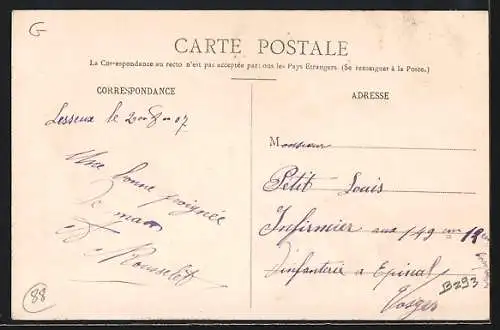 G
CARTE POSTALE
La Correspondance au recto n'est pas acceptée par tous les Pays Etrangers. (Se renseigner à la Poste.)
CORRESPONDANCE
Lesseux le 2-8-07
Une bonne poignée
de main
Rousselot
88
ADRESSE
Monsieur
Petit Louis
Infirmier au 149em 12em
d'infanterie a Epinal
Vosges
B293